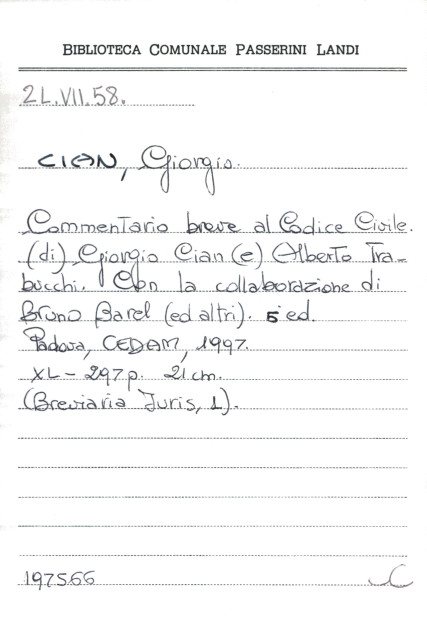 BIBLIOTECA COMUNALE PASSERINI LANDI
2L.VII.58.
CIAN, Giorgio.
Commentario breve al Codice Civile.
(di) Giorgio Cian (e) Alberto Tra-
bucchi. Con la collaborazione di
Bruno Barel (ed altri). 5 ed.
Padova, CEDAM, 1997.
XL-297p. 21cm.
(Breviaria Juris, 1).
197566